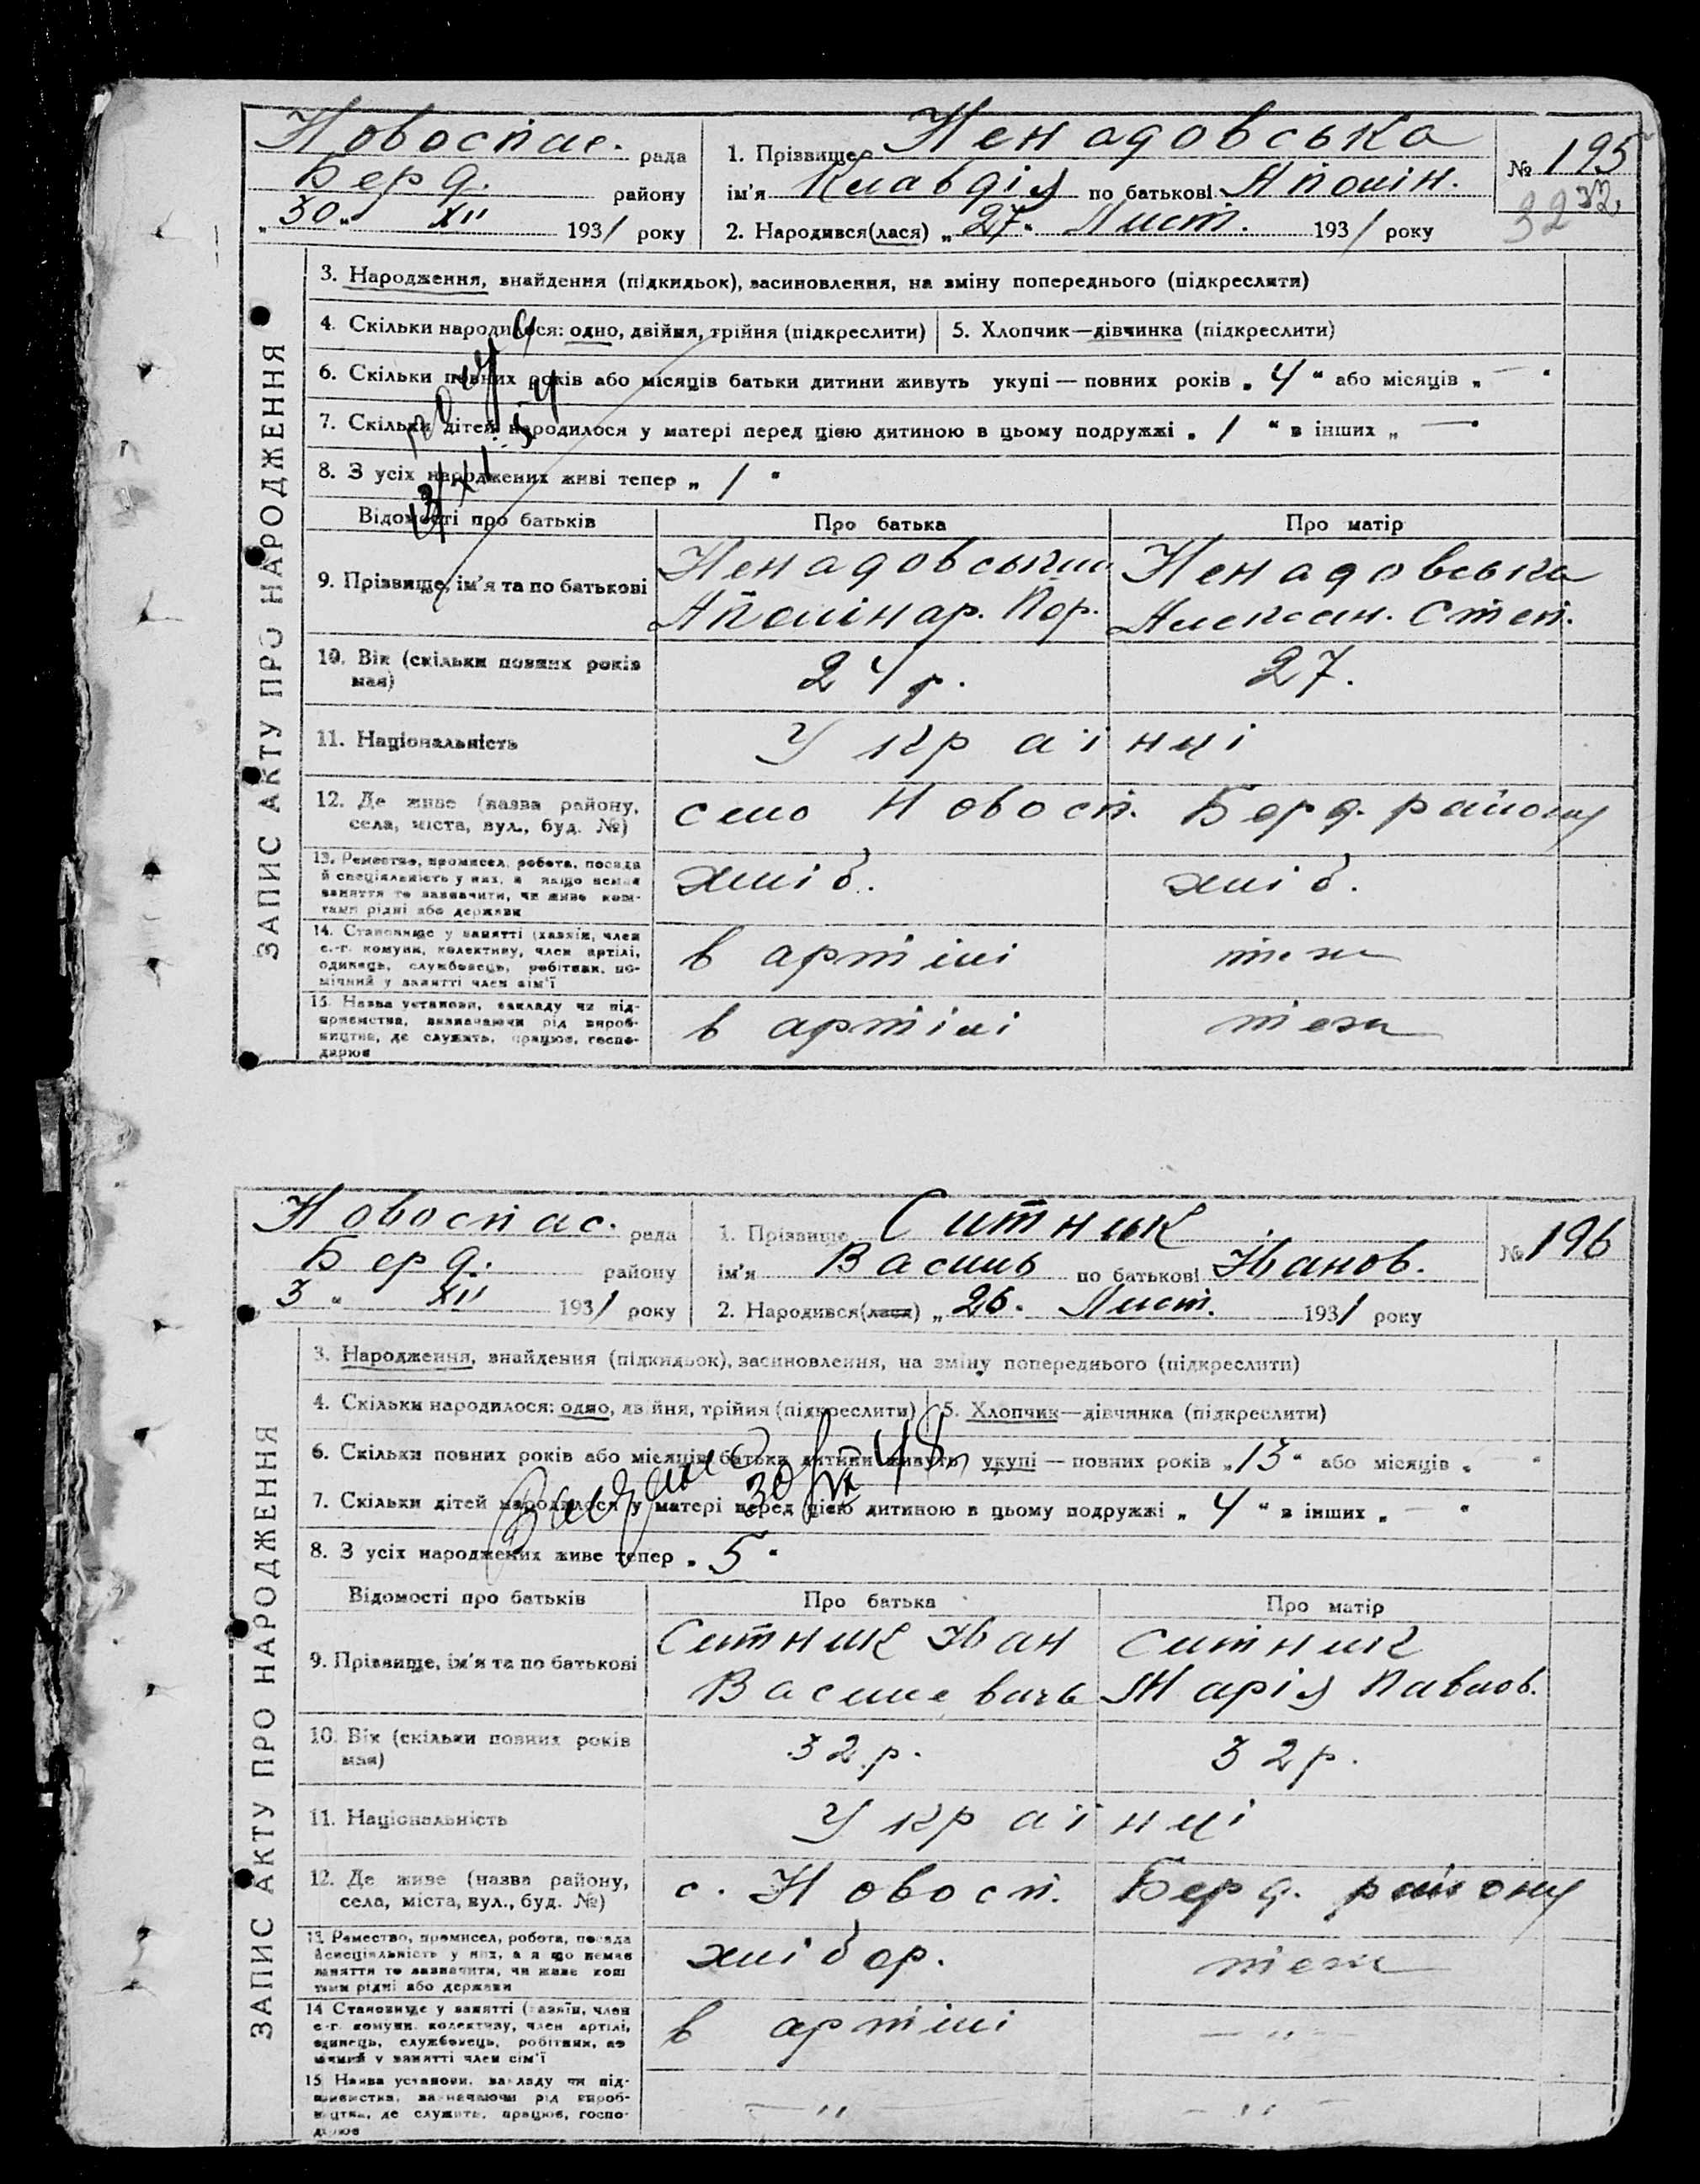 Новоспас. рада
Берд. району
„30" XII 1931 року
1. Прізвище Ненадовська
ім'я Клавдія по батькові Аполін.
2. Народився(лася) „27" Лист. 1931 року
№ 195
32
ЗАПИС АКТУ ПРО НАРОДЖЕННЯ
3. Народження, знайдення (підкидьок), засиновлення, на зміну попереднього (підкреслити)
4. Скільки народилося: одно, двійня, трійня (підкреслити) 5. Хлопчик—дівчинка (підкреслити)
6. Скільки повних років або місяців батьки дитини живуть укупі — повних років „4" або місяців „—"
7. Скільки дітей народилося у матері перед цією дитиною в цьому подружжі „1" в інших „—"
8. З усіх народжених живі тепер „1"
Відомості про батьків Про батька Про матір
9. Прізвище, ім'я та по батькові Ненадовський Ненадовська
Аполінар. Пор. Александ. Степ.
10. Вік (скільки повних років 24 р. 27.
має)
11. Національність Українці
12. Де живе (назва району, село Новосп. Берд. району
села, міста, вул., буд. №)
13. Ремество, промисел, робота, посада хліб. хліб.
й спеціяльність у них, а якщо немає
заняття то зазначити, чи живе кош-
тами рідні або держави
14. Становище у занятті (хазяїн, член в артілі теж
с.-г. комуни, колективу, член артілі,
одинець, службовець, робітник, по-
мічний у занятті член сім'ї
15. Назва установи, закладу чи під- в артілі теж
приємства, визначаючи рід вироб-
ництва, де служить, працює, госпо-
дарює
Новоспас. рада
Берд. району
3 " XII 1931 року
1. Прізвище Ситник
ім'я Василь по батькові Іванов.
2. Народився(лася) „26" Лист. 1931 року
№ 196
ЗАПИС АКТУ ПРО НАРОДЖЕННЯ
3. Народження, знайдення (підкидьок), засиновлення, на зміну попереднього (підкреслити)
4. Скільки народилося: одно, двійня, трійня (підкреслити) 5. Хлопчик—дівчинка (підкреслити)
6. Скільки повних років або місяців батьки дитини живуть укупі — повних років „13" або місяців „—"
7. Скільки дітей народилося у матері перед цією дитиною в цьому подружжі „4" в інших „—"
8. З усіх народжених живе тепер „5"
Відомості про батьків Про батька Про матір
9. Прізвище, ім'я та по батькові Ситник Іван Ситник
Василевичь Марія Павлов.
10. Вік (скільки повних років 32 р. 32 р.
має)
11. Національність Українці
12. Де живе (назва району, с. Новосп. Берд. району
села, міста, вул., буд. №)
13. Ремество, промисел, робота, посада хлібор. теж
й спеціяльність у них, а якщо немає
заняття то зазначити, чи живе кош
тами рідні або держави
14 Становище у занятті (хазяїн, член в артілі — " —
с-г. комуни, колективу, член артілі,
одинець, службовець, робітник, по
мічний у занятті член сім'ї
15 Назва установи, закладу чи під- — " — — " —
приємства, зазначаючи рід вироб-
ництва, де служить, працює, госпо-
дарює